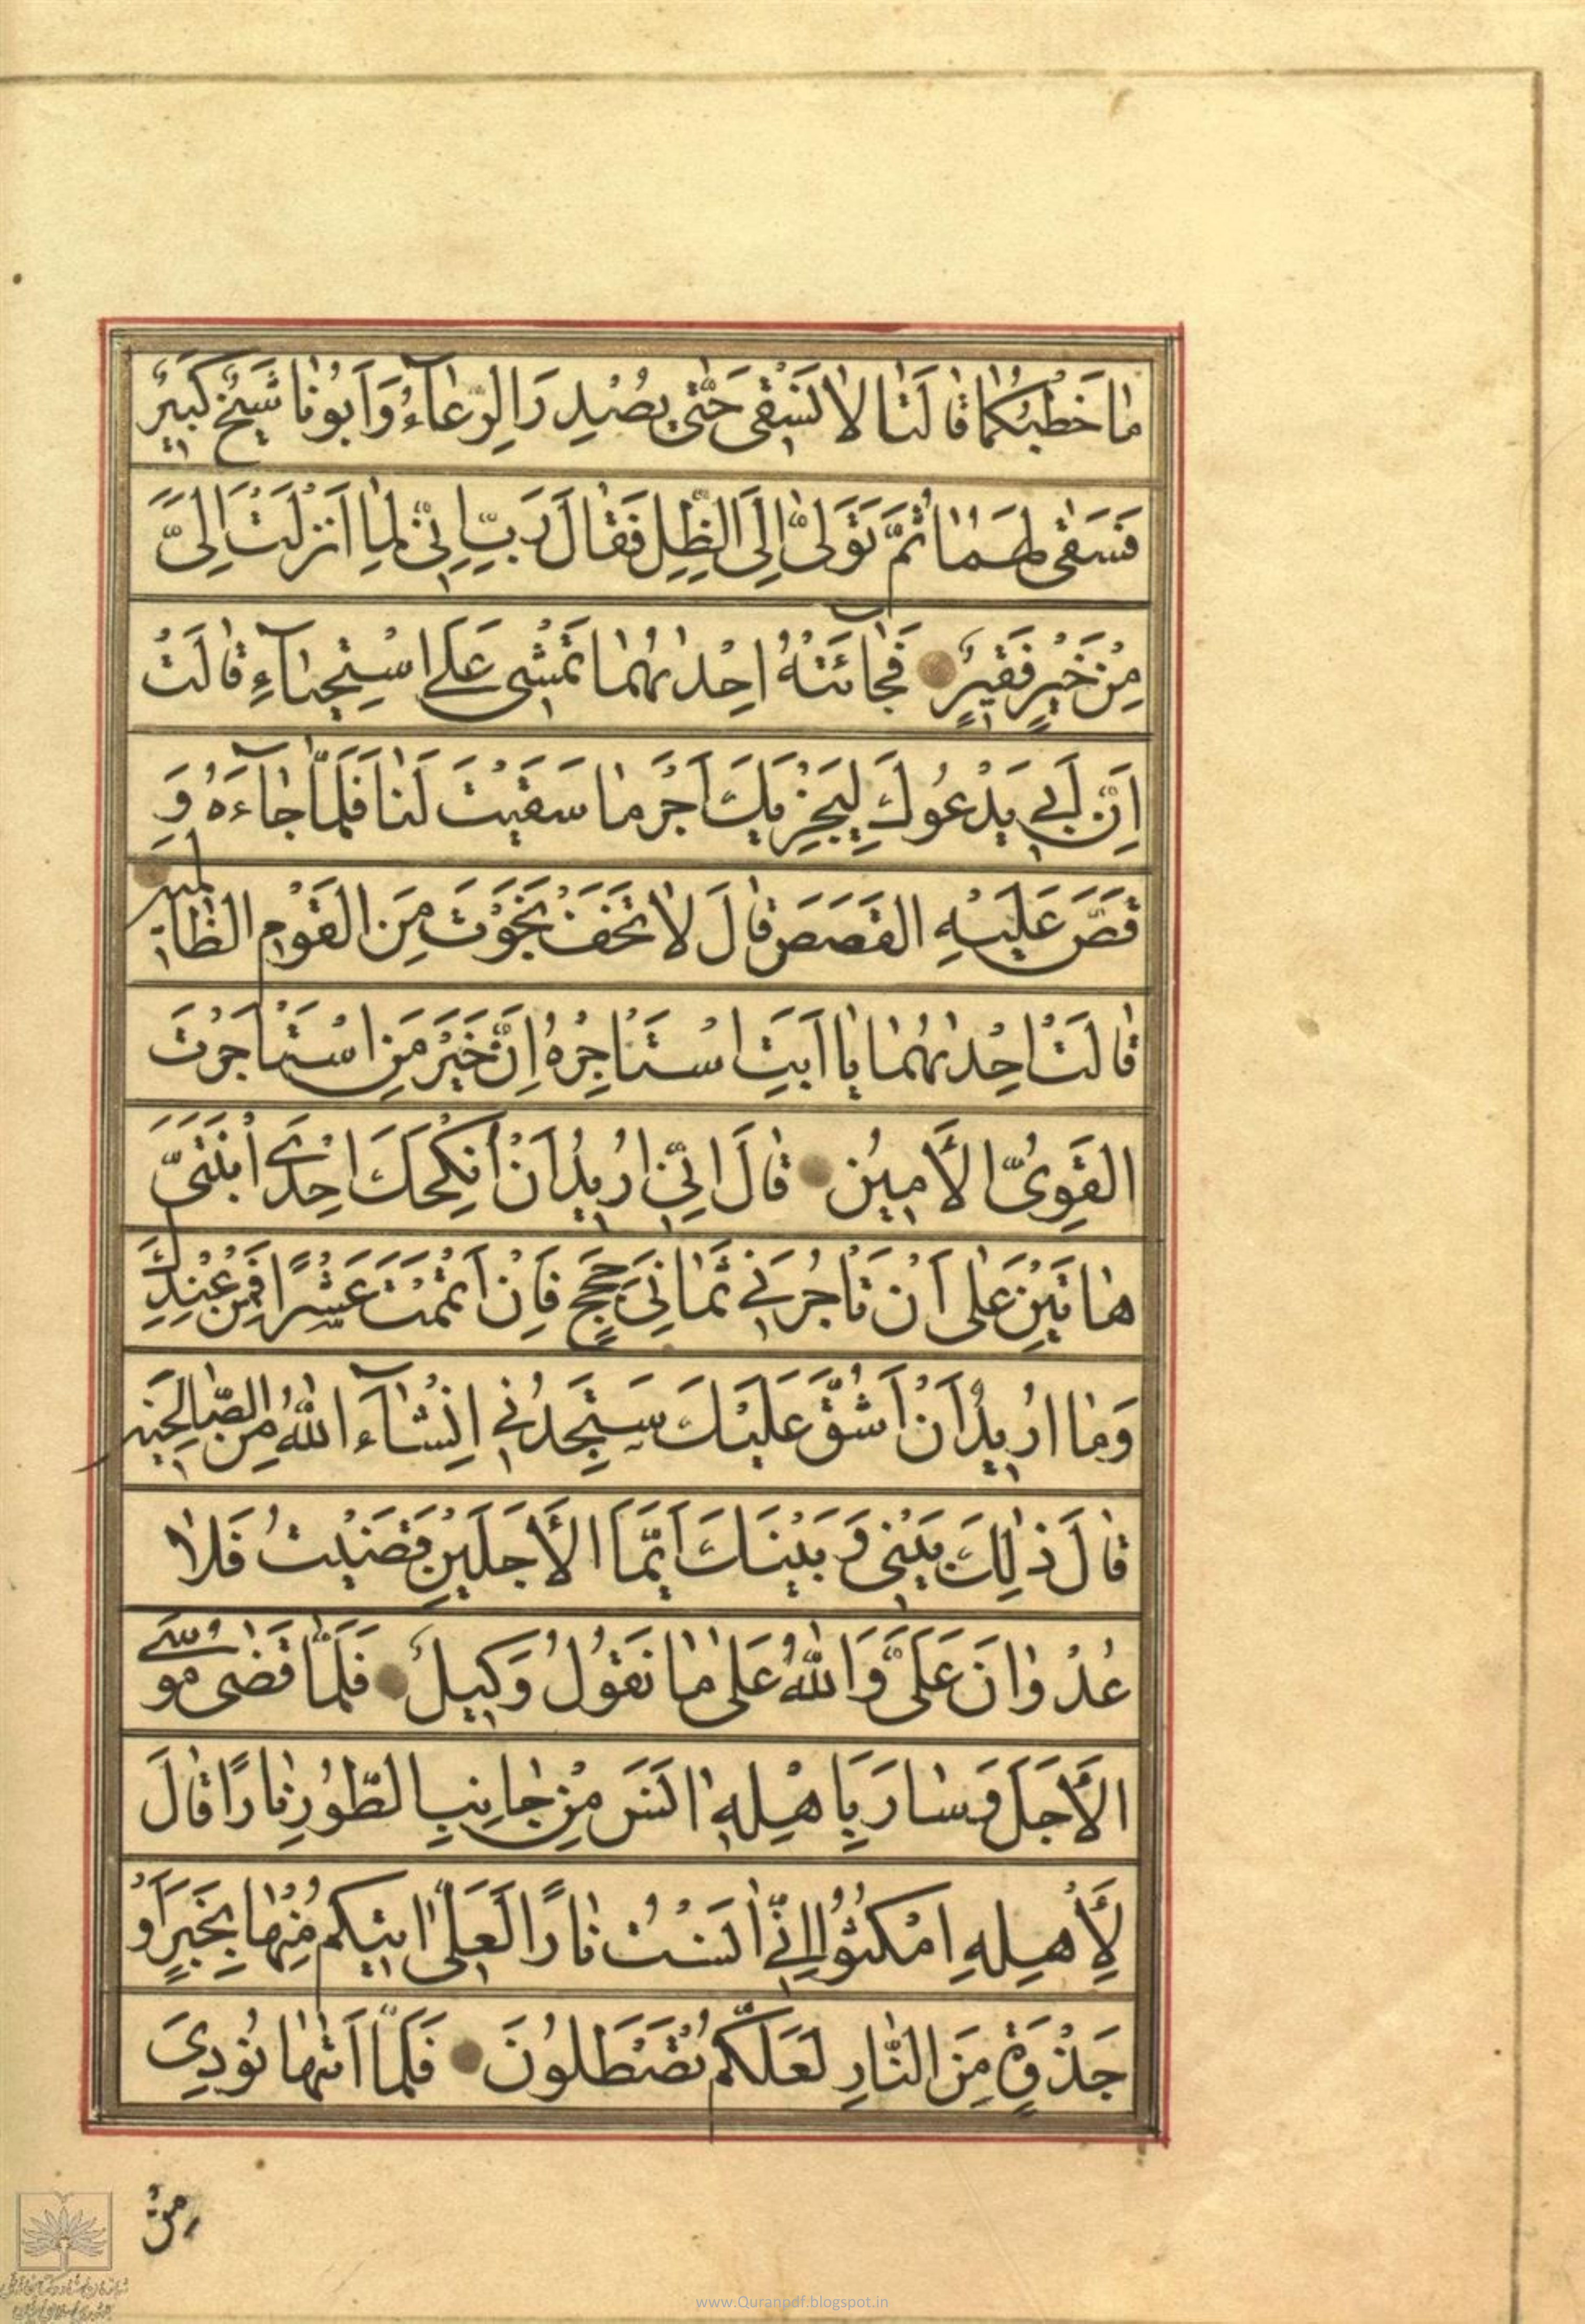 مٰا خَطْبُكُمٰا قٰالَتٰا لاٰ نَسْقٖى حَتّٰى يُصْدِرَ الرِّعٰآءُ وَاَبُونٰا شَيْخٌ كَبٖيرٌ
فَسَقٰى لَهُمٰا ثُمَّ تَوَلّٰى اِلَى الظِّلِّ فَقٰالَ رَبِّ اِنّٖى لِمٰا اَنْزَلْتَ اِلَىَّ
مِنْ خَيْرٍ فَقٖيرٌ فَجٰآئَتْهُ اِحْدٰىهُمٰا تَمْشٖى عَلَى اسْتِحْيٰآءٍ قٰالَتْ
اِنَّ اَبٖي يَدْعُوكَ لِيَجْزِيَكَ اَجْرَ مٰا سَقَيْتَ لَنٰا فَلَمّٰا جٰآءَهُ وَ
قَصَّ عَلَيْهِ الْقَصَصَ قٰالَ لاٰ تَخَفْ نَجَوْتَ مِنَ الْقَوْمِ الظّٰالِمٖينَ
قٰالَتْ اِحْدٰىهُمٰا يٰا اَبَتِ اسْتَاْجِرْهُ اِنَّ خَيْرَ مَنِ اسْتَاْجَرْتَ
الْقَوِىُّ الْأَمٖينُ قٰالَ اِنّٖي اُرٖيدُ اَنْ اُنْكِحَكَ اِحْدَى ابْنَتَىَّ
هٰاتَيْنِ عَلٰى اَنْ تَاْجُرَنٖي ثَمٰانِيَ حِجَجٍ فَاِنْ اَتْمَمْتَ عَشْرًا فَمِنْ عِنْدِكَ
وَمٰا اُرٖيدُ اَنْ اَشُقَّ عَلَيْكَ سَتَجِدُنٖي اِنْشٰآءَ اللّٰهُ مِنَ الصّٰالِحٖينَ
قٰالَ ذٰلِكَ بَيْنٖى وَبَيْنَكَ اَيَّمَا الْأَجَلَيْنِ قَضَيْتُ فَلاٰ
عُدْوٰانَ عَلَىَّ وَاللّٰهُ عَلٰى مٰا نَقُولُ وَكٖيلٌ فَلَمّٰا قَضٰى مُوسَى
الْأَجَلَ وَسٰارَ بِاَهْلِهٖ اٰنَسَ مِنْ جٰانِبِ الطُّورِ نٰارًا قٰالَ
لِأَهْلِهِ امْكُثُوا اِنّٖي اٰنَسْتُ نٰارًا لَعَلّٖى اٰتٖيكُمْ مِنْهٰا بِخَبَرٍ اَوْ
جَذْوَةٍ مِنَ النّٰارِ لَعَلَّكُمْ تَصْطَلُونَ فَلَمّٰا اَتٰىهٰا نُودِيَ
مِنْ
www.Quranpdf.blogspot.in